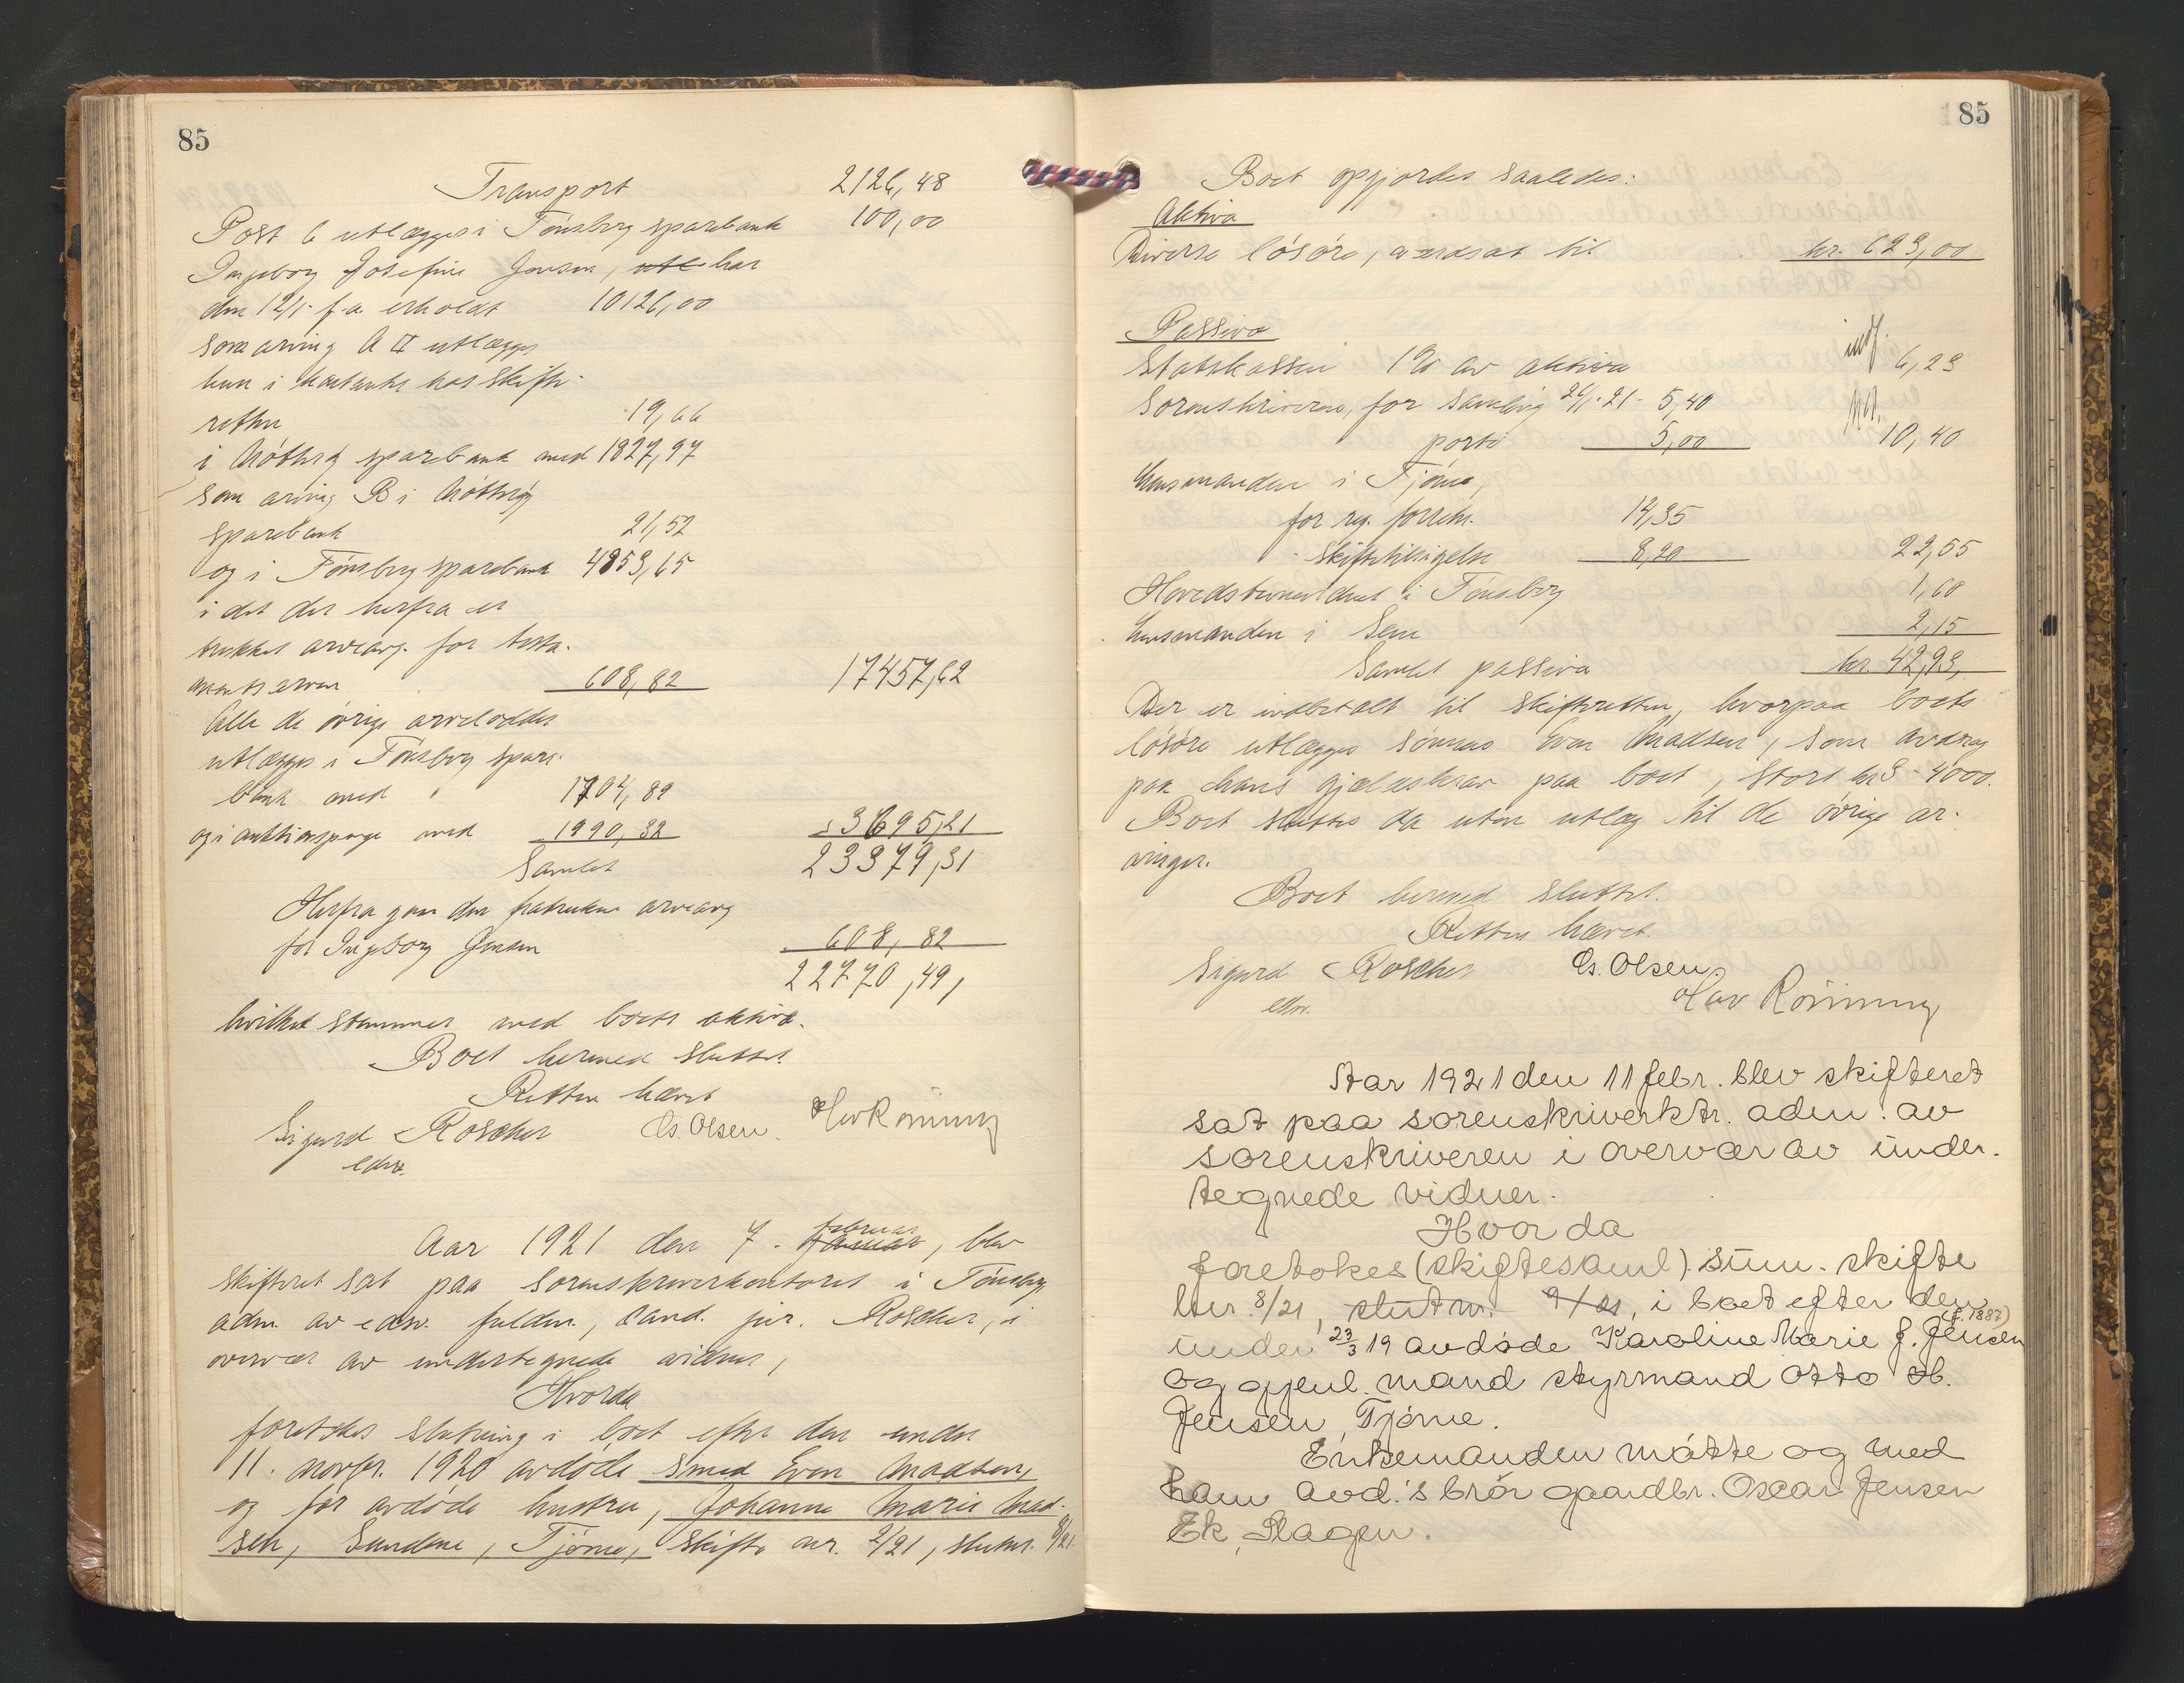 85
Transport 2126,48
Post 6 utlægges i Tönsberg sparebank 100,00
Ingeborg Josefine Jensen, utl har
den 12/1 f.a. erholdt 10126,00
som arving A II utlægges
hun i kontanter hos skifte-
retten 19,66
i Nötterö sparebank med 1827,97
som arving B i Nötterö
sparebank 21,52
og i Tönsberg sparebank 4853,65
i det der herfra er
trukket arveavg. for testa-
ments arven 608,82 17457,62
Alle de övrige arvelodder
utlægges i Tönsberg spare-
bank med 1704,89
og i auktionspenge med 1990,32 3695,21
Samlet 23379,31
Herfra gaar den fratrukne arveavg
for Ingeborg Jensen 608,82
22770,49,
hvilket stemmer med boets aktiva.
Boet hermed sluttet.
Retten hævet
Sigurd Roscher Cs. Olsen. Olav Rönning
edsv.
Aar 1921 den 7. januar februar, blev
skifteret sat paa sorenskriverkontoret i Tönsberg
adm. av edsv. fuldm., cand. jur. Roscher, i
overvær av undertegnede vidner,
Hvorda
foretokes slutning i boet efter den under
11. novbr. 1920 avdöde smed Even Madsen,
og för avdöde hustru, Johanne Marie Mad-
sen, Sundene, Tjömö, Skifte nr. 2/21, slutnr. 8/21.
85
Boet opgjordes saaledes:
Aktiva
Diverse lösöre, værdsat til kr. 623,00
Passiva
Statskassen 1% av aktiva 6,23
Sorenskriveren, for samling 26/1-21 - 5,40
porto 5,00 10,40
Lensmanden i Tjömö,
for reg. forretn. 14,35
- skiftetilsigelse 8,20 22,55
Hovedstevnevidnet i Tönsberg 1,60
Lensmanden i Sem 2,15
Samlet passiva kr. 42,93,
Der er indbetalt til skifteretten, hvorpaa boets
lösöre utlægges sönnen Even Madsen, som avdrag
paa hans gjældskrav paa boet, stort kr 3-4000.
Boet sluttes da uten utlæg til de övrige ar-
vinger.
Boet hermed sluttet.
Retten hævet.
Sigurd Roscher Cs. Olsen
edsv. Olav Rönning
Aar 1921 den 11 febr. blev skifteret
sat paa sorenskriverktr. adm. av
sorenskriveren i overvær av under-
tegnede vidner.
Hvor da
foretokes (skiftesaml). sum. skifte
lnr 8/21, slutnr. 9/21, i boet efter den
under 23/3 19 avdøde Karoline Marie J. Jensen (f. 1887)
og gjenl. mand styrmand Otto H.
Jensen, Tjøme.
Enkemanden møtte og med
ham avd.'s bror gaardbr. Oscar Jensen
Ek, Slagen.